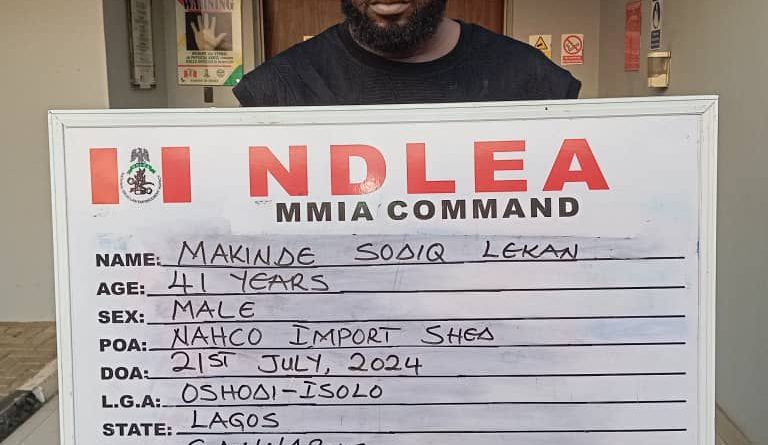 WARNING
NDLEA
MMIA COMMAND
NAME: MAKINDE SODIQ LEKAN
AGE: 41 YEARS
SEX: MALE
POA: NAHCO IMPORT SHED
DOA: 21ST JULY, 2024
L.G.A: OSHODI-ISOLO
STATE: LAGOS